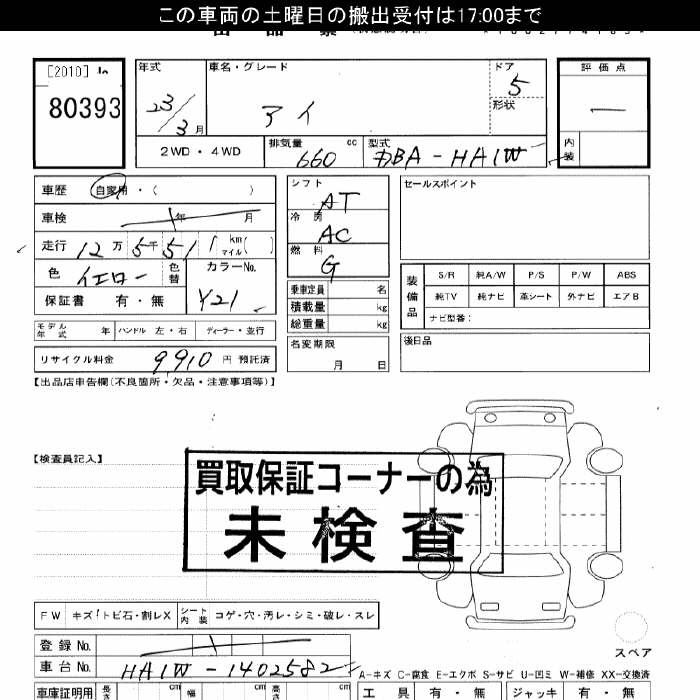 この車両の土曜日の搬出受付は17:00まで
[2010]
80393
年式 車名・グレード ドア 評価点
23/3月 アイ 5 形状 —
2WD・4WD 排気量 660 cc 型式 DBA-HA1W 内装
車歴 自家用・( )
車検 年 月
走行 12万5千51 km マイル( )
色 イエロー 色替 カラーNo. Y21
保証書 有・無
モデル年式 年 ハンドル 左・右 ディーラー・並行
リサイクル料金 9910 円 預託済
シフト AT
冷房 AC
燃料 G
乗車定員 名
積載量 kg
総重量 kg
名変期限 月 日
セールスポイント
装備品 S/R 純A/W P/S P/W ABS
純TV 純ナビ 革シート 外ナビ エアB
ナビ型番:
後日品
【出品店申告欄(不良箇所・欠品・注意事項等)】
【検査員記入】
買取保証コーナーの為
未検査
FW キズ・トビ石・割レX シート内装 コゲ・穴・汚レ・シミ・破レ・スレ
スペア
登録No.
車台No. HA1W-1402582
A-キズ C-腐食 E-エクボ S-サビ U-凹ミ W-補修 XX-交換済
車庫証明用 長さ cm 幅 cm 高さ cm 工具 有・無 ジャッキ 有・無